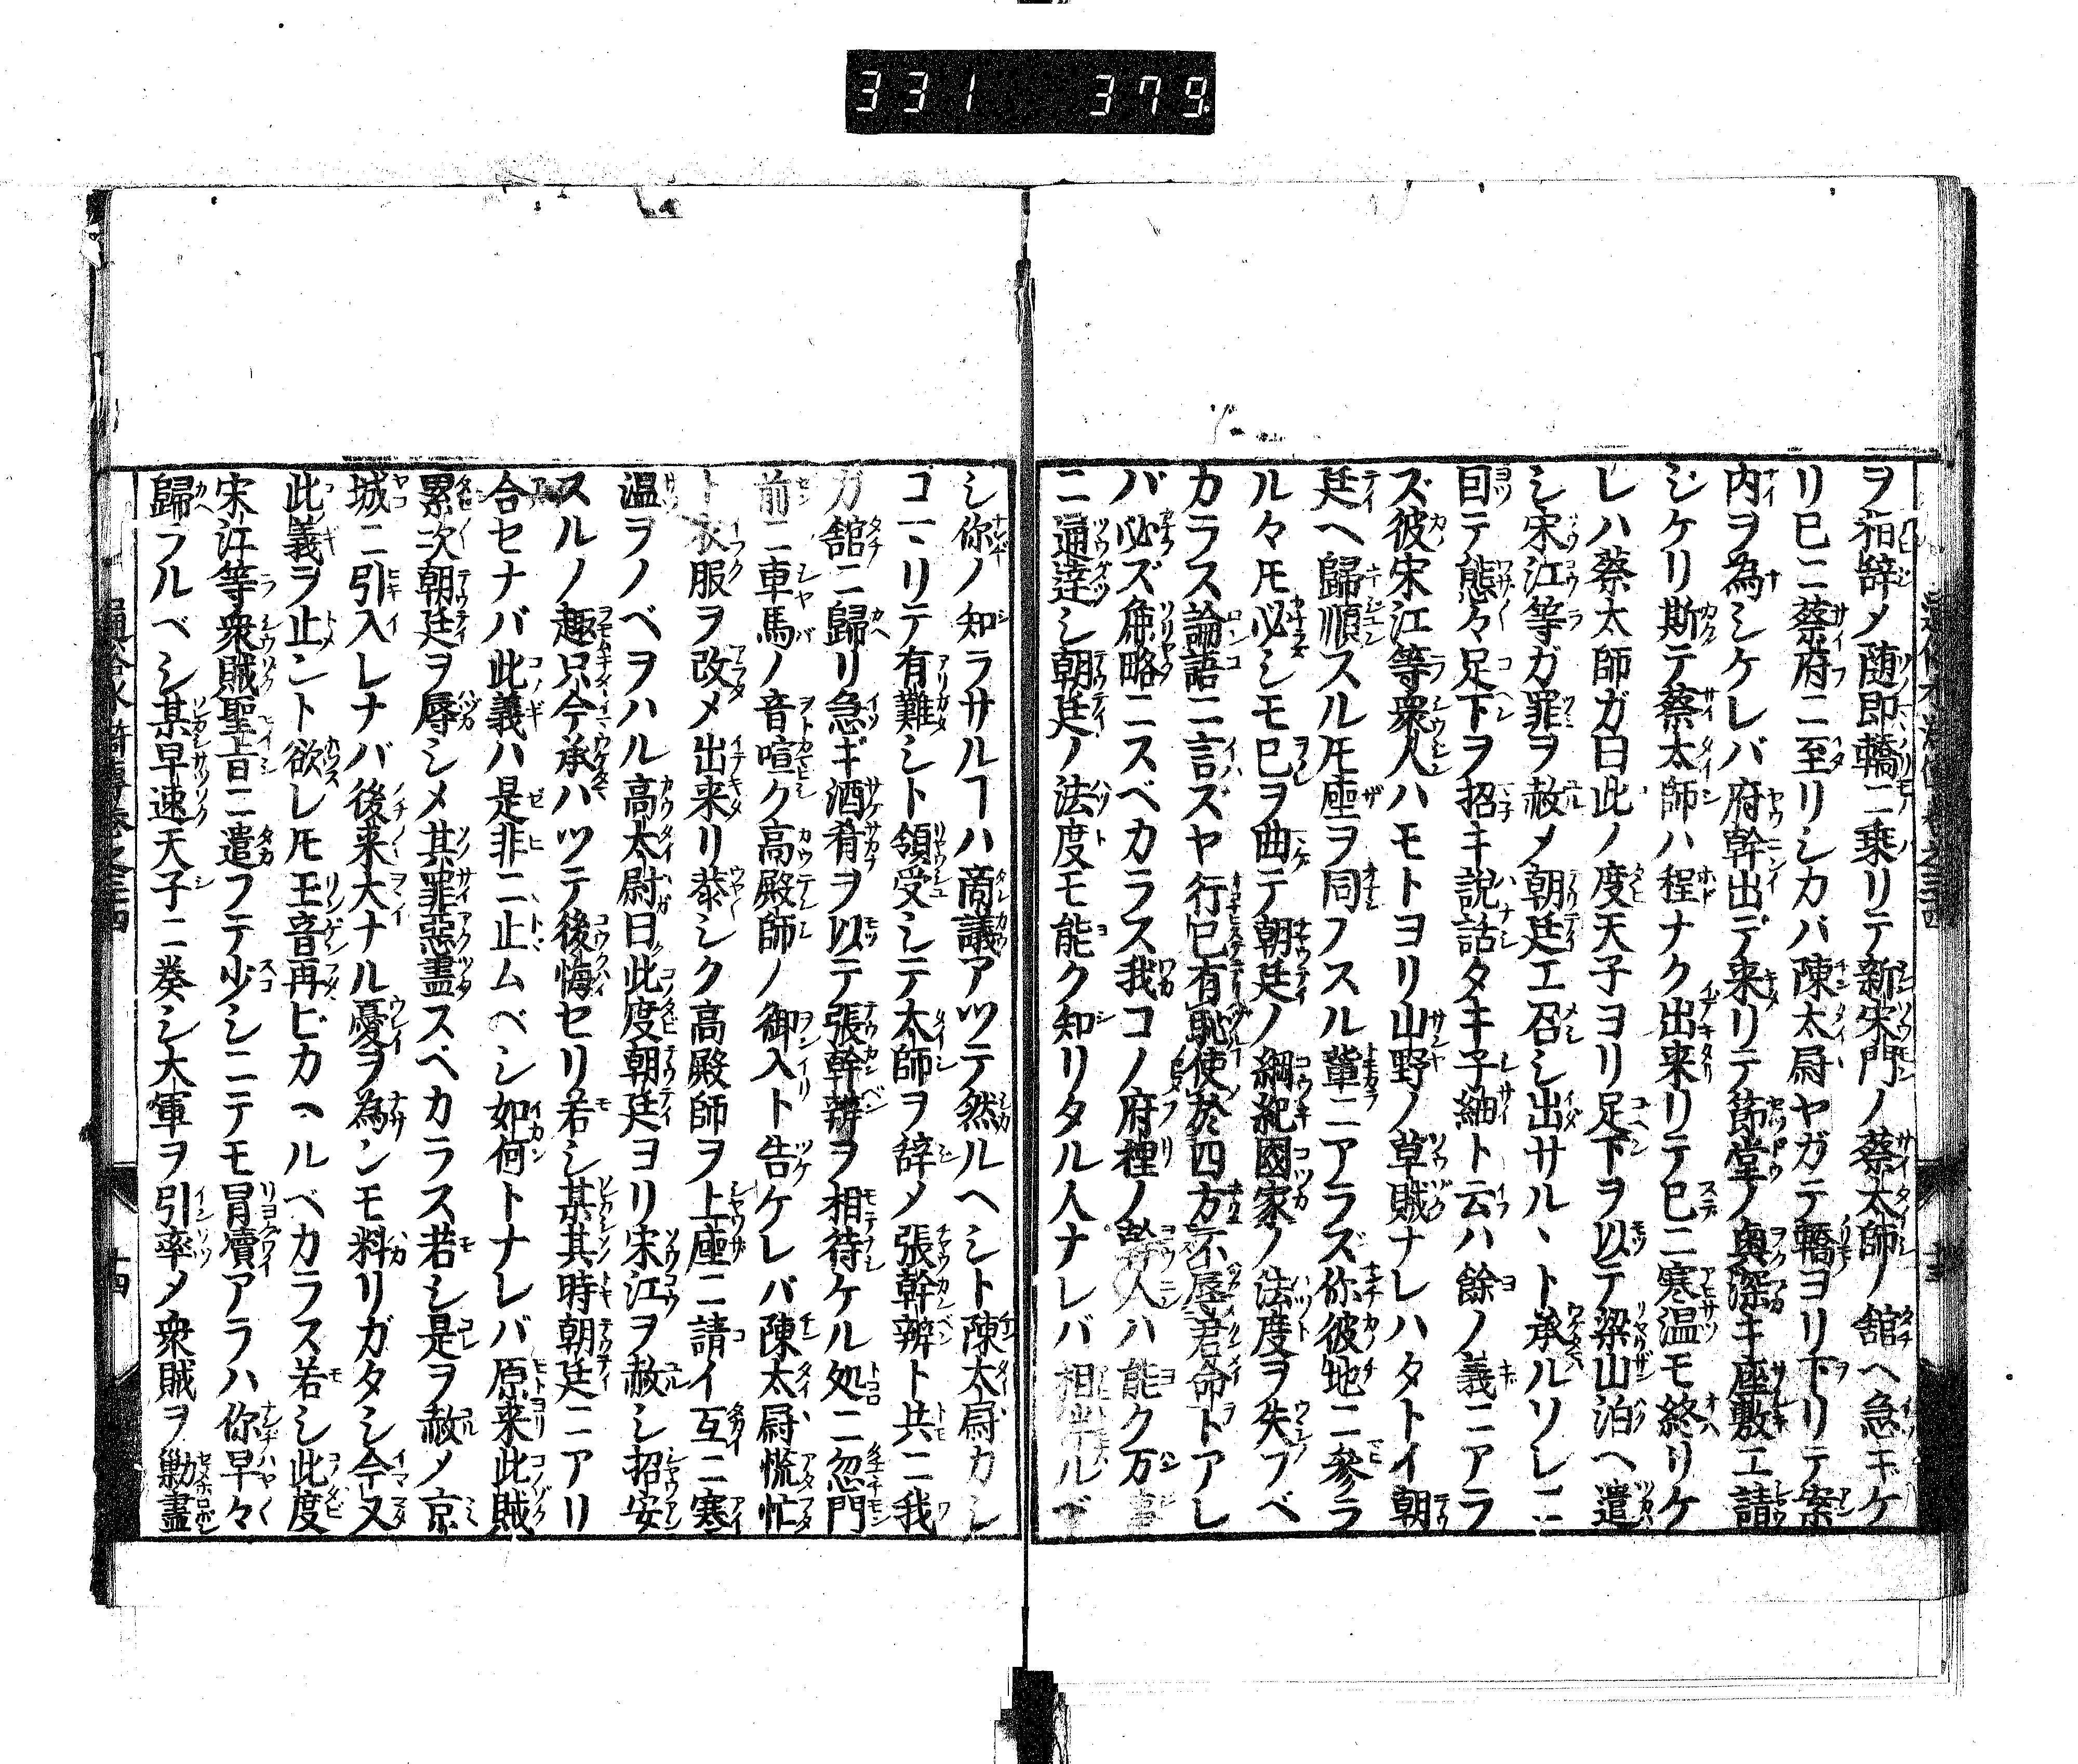 331 379
ヲ相辞メ随即轎ニ乗リテ新宋門ノ蔡太師ノ舘ヘ急ギケ
リ已ニ蔡府ニ至リシカバ陳太尉ヤガテ轎ヨリ下リテ案
内ヲ為シケレバ府幹出デ来リテ節堂ノ奥深キ座敷エ請
ジケリ斯テ蔡太師ハ程ナク出来リテ已ニ寒温モ終リケ
レハ蔡太師ガ曰此ノ度天子ヨリ足下ヲ以テ梁山泊ヘ遣
シ宋江等ガ罪ヲ赦メ朝廷エ召シ出サルヽト承ルソレニ
因テ態々足下ヲ招キ説話タキ子細ト云ハ餘ノ義ニアラ
ズ彼宋江等衆人ハモトヨリ山野ノ草賊ナレハタトイ朝
廷ヘ歸順スル𪜈座ヲ同フスル輩ニアラズ你彼地ニ參ラ
ル々𪜈必シモ已ヲ曲テ朝廷ノ綱紀國家ノ法度ヲ失フベ
カラス論語ニ言ズヤ行已有恥使於四方不辱君命トアレ
バ必ズ麁略ニスベカラス我コノ府裡ノ幹人ハ能ク万事
ニ通達シ朝廷ノ法度モ能ク知リタル人ナレバ相半ルベ
シ你ノ知ラサルヿハ商議アツテ然ルヘシト陳太尉カシ
コヽリテ有難シト領受シテ太師ヲ辞メ張幹辨ト共ニ我
カ舘ニ歸リ急ギ酒肴ヲ以テ張幹辨ヲ相待ケル処ニ忽門
前ニ車馬ノ音喧ク高殿師ノ御入ト告ケレバ陳太尉慌忙
ト衣服ヲ改メ出来リ恭シク高殿師ヲ上座ニ請イ互ニ寒
温ヲノベヲハル高太尉曰此度朝廷ヨリ宋江ヲ赦シ招安
スルノ趣只今承ハツテ後悔セリ若シ某其時朝廷ニアリ
合セナバ此義ハ是非ニ止ムベシ如何トナレバ原来此賊
累次朝廷ヲ辱シメ其罪惡盡スベカラス若シ是ヲ赦メ京
城ニ引入レナバ後来大ナル憂ヲ為ンモ料リガタシ今又
此義ヲ止ントト欲レ𪜈王音再ビカヘルベカラス若シ此度
宋江等衆賊聖旨ニ違フテ少シニテモ冒瀆アラハ你早々
歸ラルベシ某早速天子ニ奏シ大軍ヲ引率メ衆賊ヲ勦盡